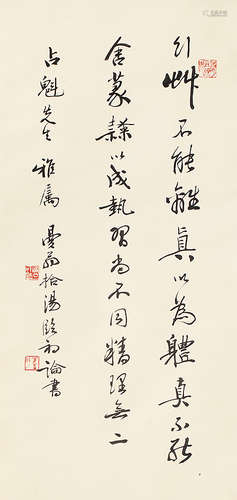 行艸不能離真以為體真不能
舍篆隸以成執習尚不同精理無二
占魁先生雅属 曼翁拾湯臨初論書